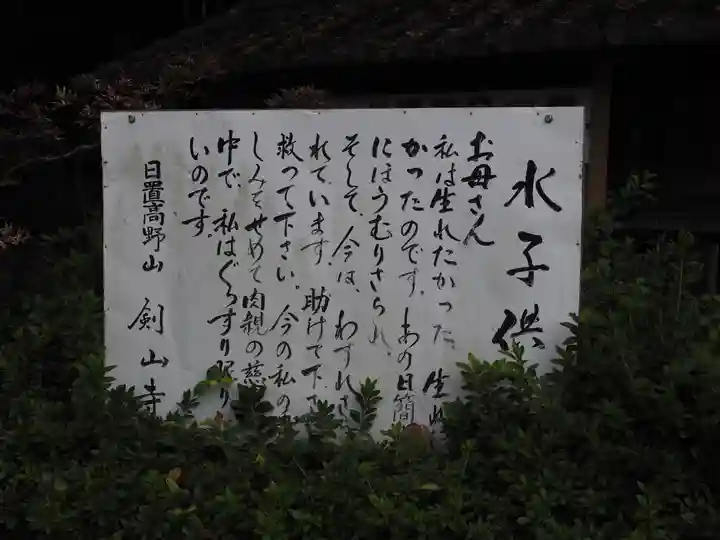 水子供
お母さん
私は生れたかった、生れ
かったのです。あの日簡
にほうむりさられ、
そして、今は、わすれさ
れています。助けて下さ
救って下さい。今の私の
しみをせめて肉親の慈
中で、私はぐっすり眠り
いのです。
日置高野山 剣山寺